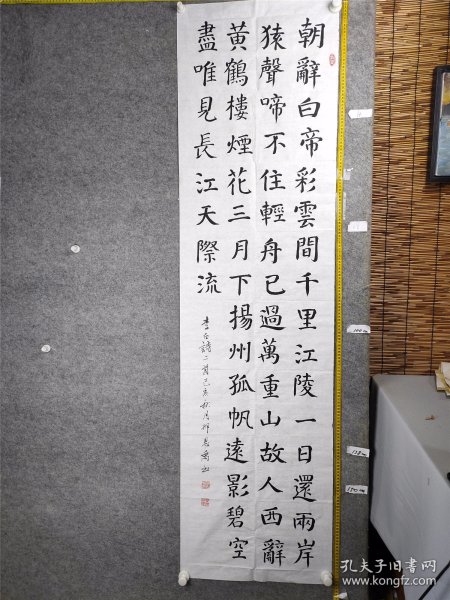 朝辭白帝彩雲間千里江陵一日還兩岸
猿聲啼不住輕舟已過萬重山故人西辭
黃鶴樓煙花三月下揚州孤帆遠影碧空
盡唯見長江天際流
李白詩二首己亥秋月
孔夫子旧书网
www.kongfz.com